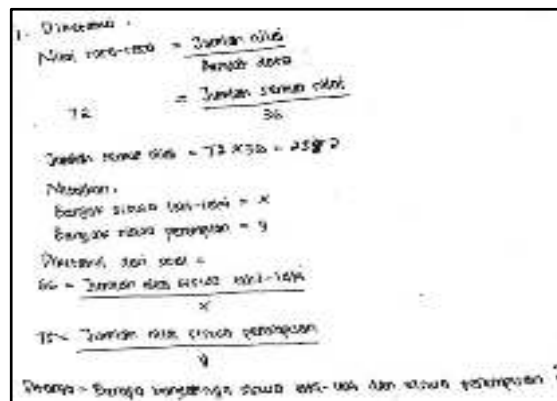 1. Diketahui :
Nilai rata-rata = Jumlah nilai
Banyak data
72 = Jumlah semua nilai
36
Jumlah semua nilai = 72 x 36 = 2592
Misalkan :
Banyak siswa laki-laki = x
Banyak siswa perempuan = y
Diketahui dari soal =
= Jumlah nilai siswa laki-laki
x
75 = Jumlah nilai siswa perempuan
y
Ditanya = Berapa banyaknya siswa laki-laki dan siswa perempuan ?